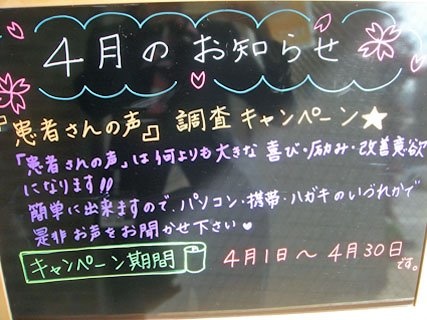 4月のお知らせ
『患者さんの声』 調査キャンペーン★
「患者さんの声」は何よりも大きな 喜び・励み・改善意欲
になります!!
簡単に出来ますので、パソコン・携帯・ハガキのいづれかで
是非お声をお聞かせ下さい♥
キャンペーン期間 4月1日～4月30日です。